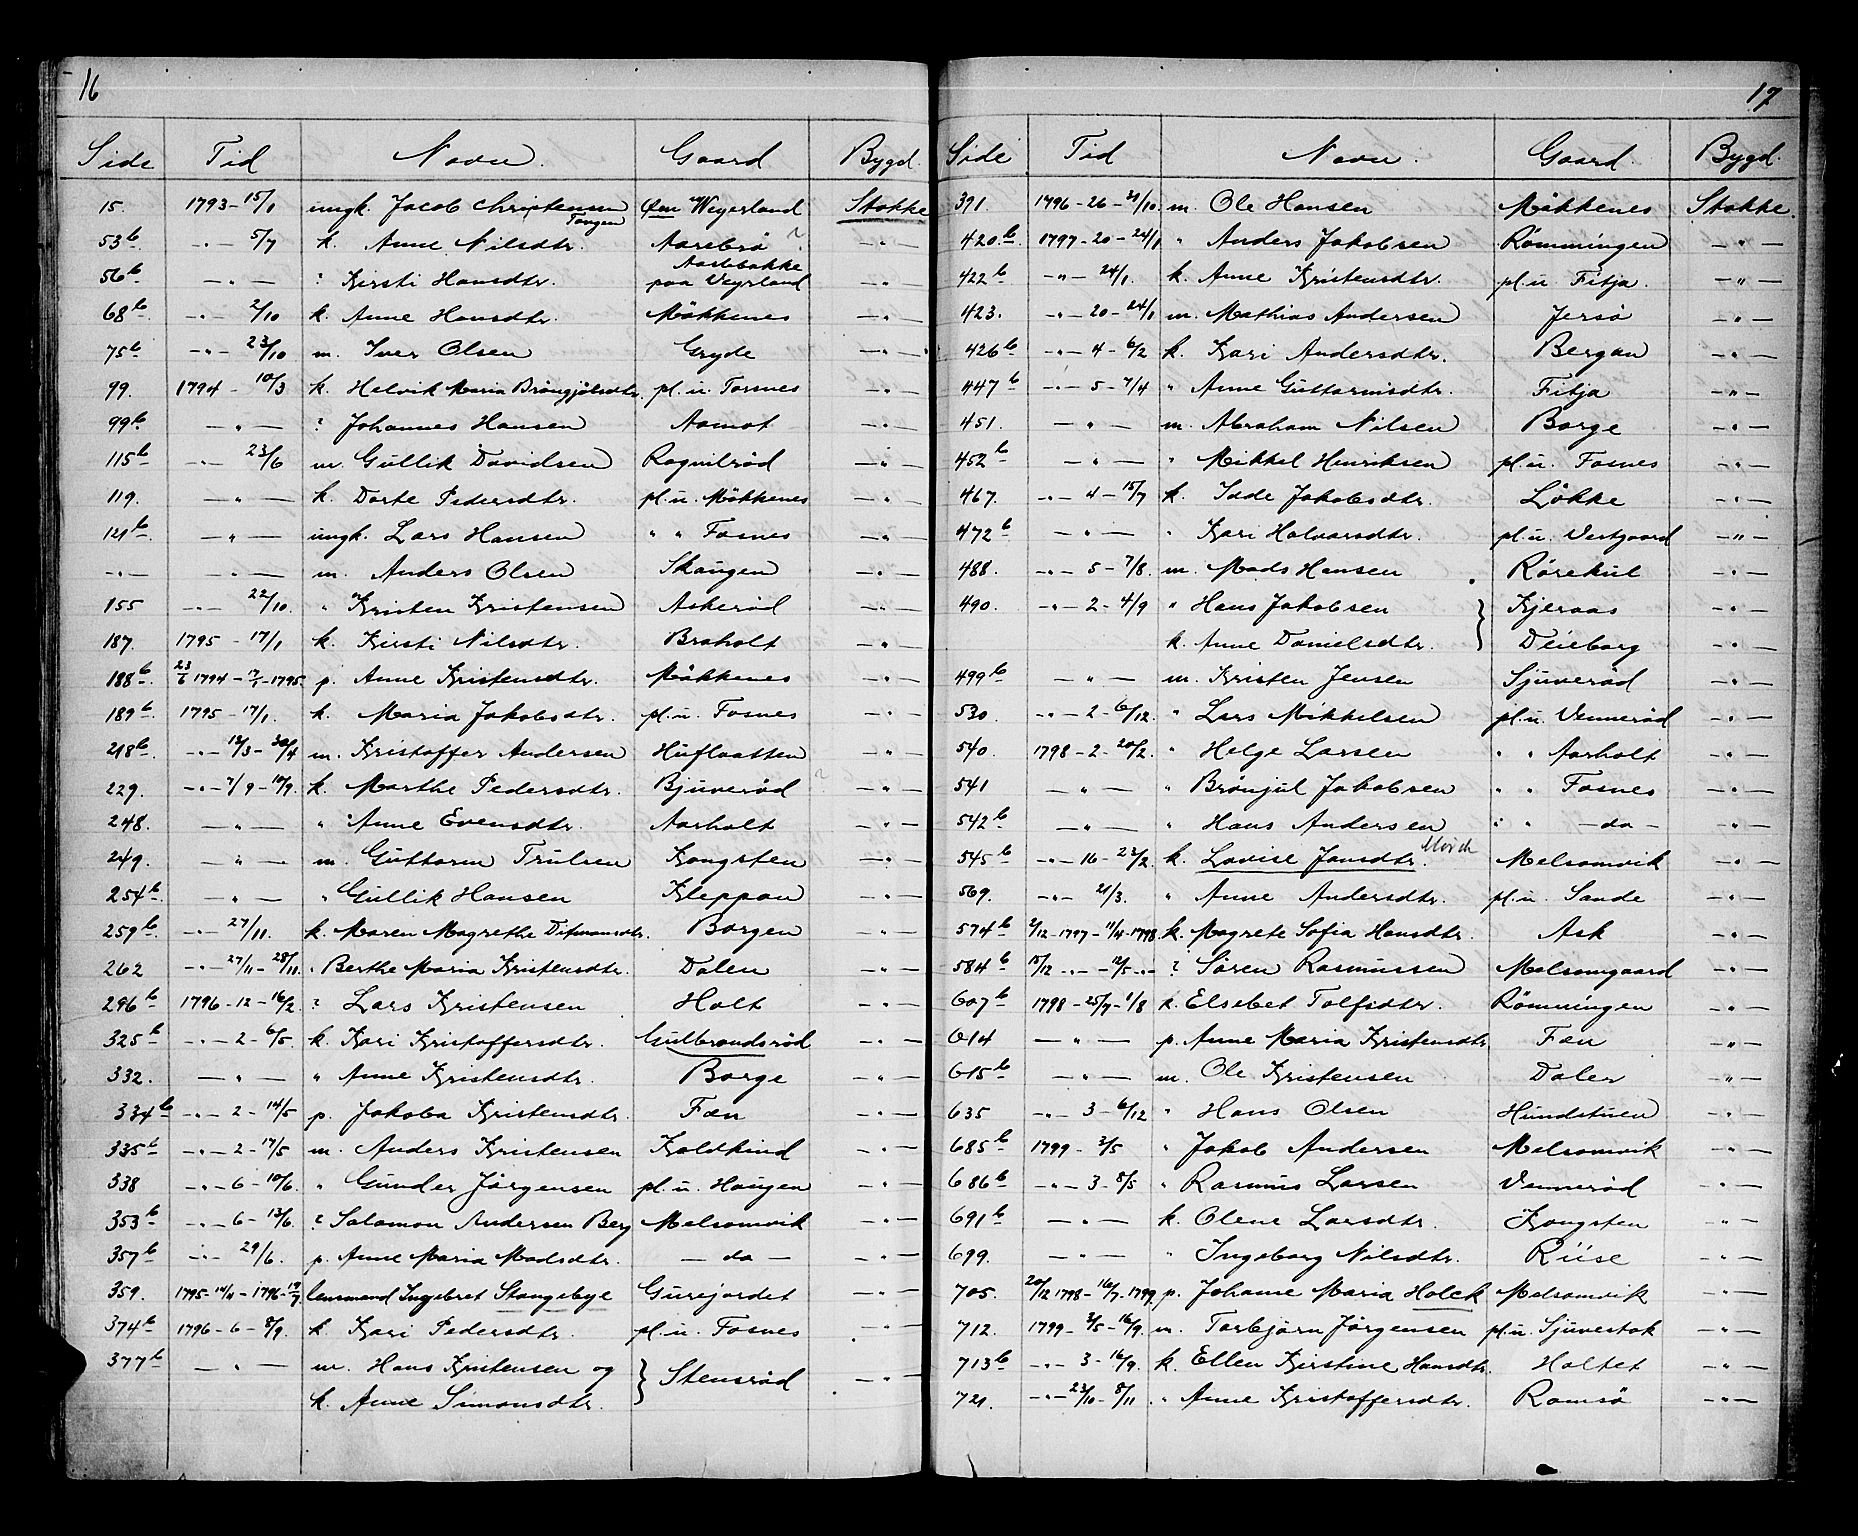 16
Side Tid Navn. Gaard Bygd
15. 1793 - 15/1 ungk. Jacob Christensen Tangen Øm Weyerland Stokke
53b -"- 5/7 k. Anne Nilsdtr. Aarebrø ? -"-
56b -"- ? Kirsti Hansdtr. Aarebakke paa Veyrland -"-
68b -"- 2/10 k. Anne Hansdtr. Møkkenes -"-
75b -"- 23/10 m. Iver Olsen Gryde -"-
99. 1794 - 10/3 k. Helvik Maria Brøngjølsdtr. pl. u. Fosnes -"-
99b -"- ? Johannes Hansen Aamot -"-
115b -"- 23/6 m. Gullik Davidsen Rognilrød -"-
119. -"- k. Dorte Pedersdtr. pl. u. Møkkenes -"-
121b -"- ungk. Lars Hansen " " Fosnes -"-
-"- -"- m. Anders Olsen Skaugen -"-
155 -"- 22/10. " Kristen Kristensen Askerød -"-
187. 1795 - 17/1 k. Kirsti Nilsdtr. Braholt -"-
188b 23/6 1794 - 17/1 - 1795. p. Anne Kristensdtr. Møkkenes -"-
189b 1795 - 17/1. k. Maria Jakobsdtr. pl. u. Fosnes -"-
218b -"- 17/3 - 30/4 m. Kristoffer Andersen Huflaatten -"-
229. -"- 7/9 - 10/9. k. Marthe Pedersdtr. Bjuverød ? -"-
248. -"- " Anne Evensdtr. Aarholt -"-
249. -"- m. Guttorm Trulsen Kongsten -"-
254b -"- " Gullik Hansen Kleppan -"-
259b -"- 27/11. k. Maren Magrethe Ditmansdtr. Borgen -"-
262 -"- 27/11 - 28/11. " Berthe Maria Kristensdtr. Dalen -"-
296b 1796 - 12 - 16/2. ? Lars Kristensen Holt -"-
325b -"- 2 - 6/5. k. Kari Kristoffersdtr. Gulbrandsrød -"-
332. -"- " Anne Kristensdtr. Borge -"-
334b -"- 2 - 14/5 p. Jakoba Kristensdtr. Fæn -"-
335b -"- 2 - 17/5 m. Anders Kristensen Koldkind -"-
338 -"- 6 - 10/6. " Gunder Jørgensen pl. u. Haugen -"-
353b -"- 6 - 13/6. ? Salamon Andersen Berg Melsomvik -"-
357b -"- 29/6. p. Anne Maria Madsdtr. - do - -"-
359. 1795 - 14/11 - 1796 - 19/7 lensmand Ingebret Stangebye Gurejordet -"-
374b 1796 - 6 - 8/9. k. Kari Pedersdtr. pl. u. Fosnes -"-
377b -"- m. Hans Kristensen og } Stensrød -"-
k. Anne Simonsdtr.
17
Side Tid Navn. Gaard. Bygd.
391. 1796 - 26 - 30/10. m. Ole Hansen Møkkenes Stokke.
420b 1797 - 20 - 24/1 " Anders Jakobsen Rømmingen -"-
422b -"- 24/1. k. Anne Kristensdtr. pl. u. Fitja. -"-
423. -"- 20 - 24/1 m. Mathias Andersen Jersø -"-
426b -"- 4 - 6/2 k. Kari Andersdtr. Bergan -"-
447b -"- 5 - 7/4 " Anne Guttormsdtr. Fitja -"-
451. -"- m. Abraham Nilsen Borge -"-
452b -"- " Mikkel Henriksen pl. u. Fosnes -"-
467. -"- 4 - 15/7 k. Idde Jakobsdtr. Løkke -"-
472b -"- " Kari Halvorsdtr. pl. u. Vestgaard -"-
488. -"- 5 - 7/8. m. Mads Hansen Rørekul -"-
490. -"- 2 - 4/9 " Hans Jakobsen } Kjeraas -"-
k. Anne Danielsdtr. Deieborg -"-
499b -"- m. Kristen Jensen Sjuverød -"-
530. -"- 2 - 6/12. " Lars Mikkelsen pl. u. Vennerød -"-
540. 1798 - 2 - 20/2. " Helge Larsen " " Aarholt -"-
541 -"- " Brønjul Jakobsen " " Fosnes -"-
542b -"- " Hans Andersen " " - do - -"-
545b -"- 16 - 23/2. k. Lovise Jansdtr. Melsomvik -"-
569. -"- 21/3. " Anne Andersdtr. pl. u. Sande -"-
574b 2/12 - 1797 - 11/4 - 1798. k. Magrete Sofia Hansdtr. Ask -"-
584b 15/12 -"- - 12/5 -"- ? Søren Rasmussen Melsomgaard -"-
607b 1798 - 25/7 - 1/8 k. Elsebet Tolfsdtr. Rømmingen -"-
614 -"- p. Anne Maria Kristensdtr. Fæn -"-
615b -"- m. Ole Kristensen Dalen -"-
635 -"- 3 - 6/12 " Hans Olsen Hundstuen -"-
685b 1799 - 3/5 " Jakob Andersen Melsomvik -"-
686b -"- 3 - 8/5 " Rasmus Larsen Vennerød -"-
691b -"- k. Olene Larsdtr. Kongsten -"-
699. -"- " Ingeborg Nilsdtr. Riise -"-
705. 20/12 1798 - 16/7 - 1799. p. Johanne Maria Holck Melsomvik -"-
712. 1799 - 3/5 - 16/9. m. Torbjørn Jørgensen pl. u. Sjuvestok -"-
713b -"- 3 - 16/9. k. Ellen Kirstine Hansdtr. Holtet -"-
721. -"- 23/10 - 8/11 " Anne Kristoffersdtr. Ramsø -"-